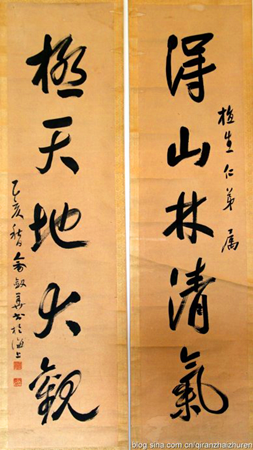 得山林清氣
植生仁弟屬
極天地大觀
乙亥 書於海上
blog.sina.com.cn/qiranzhaizhuren